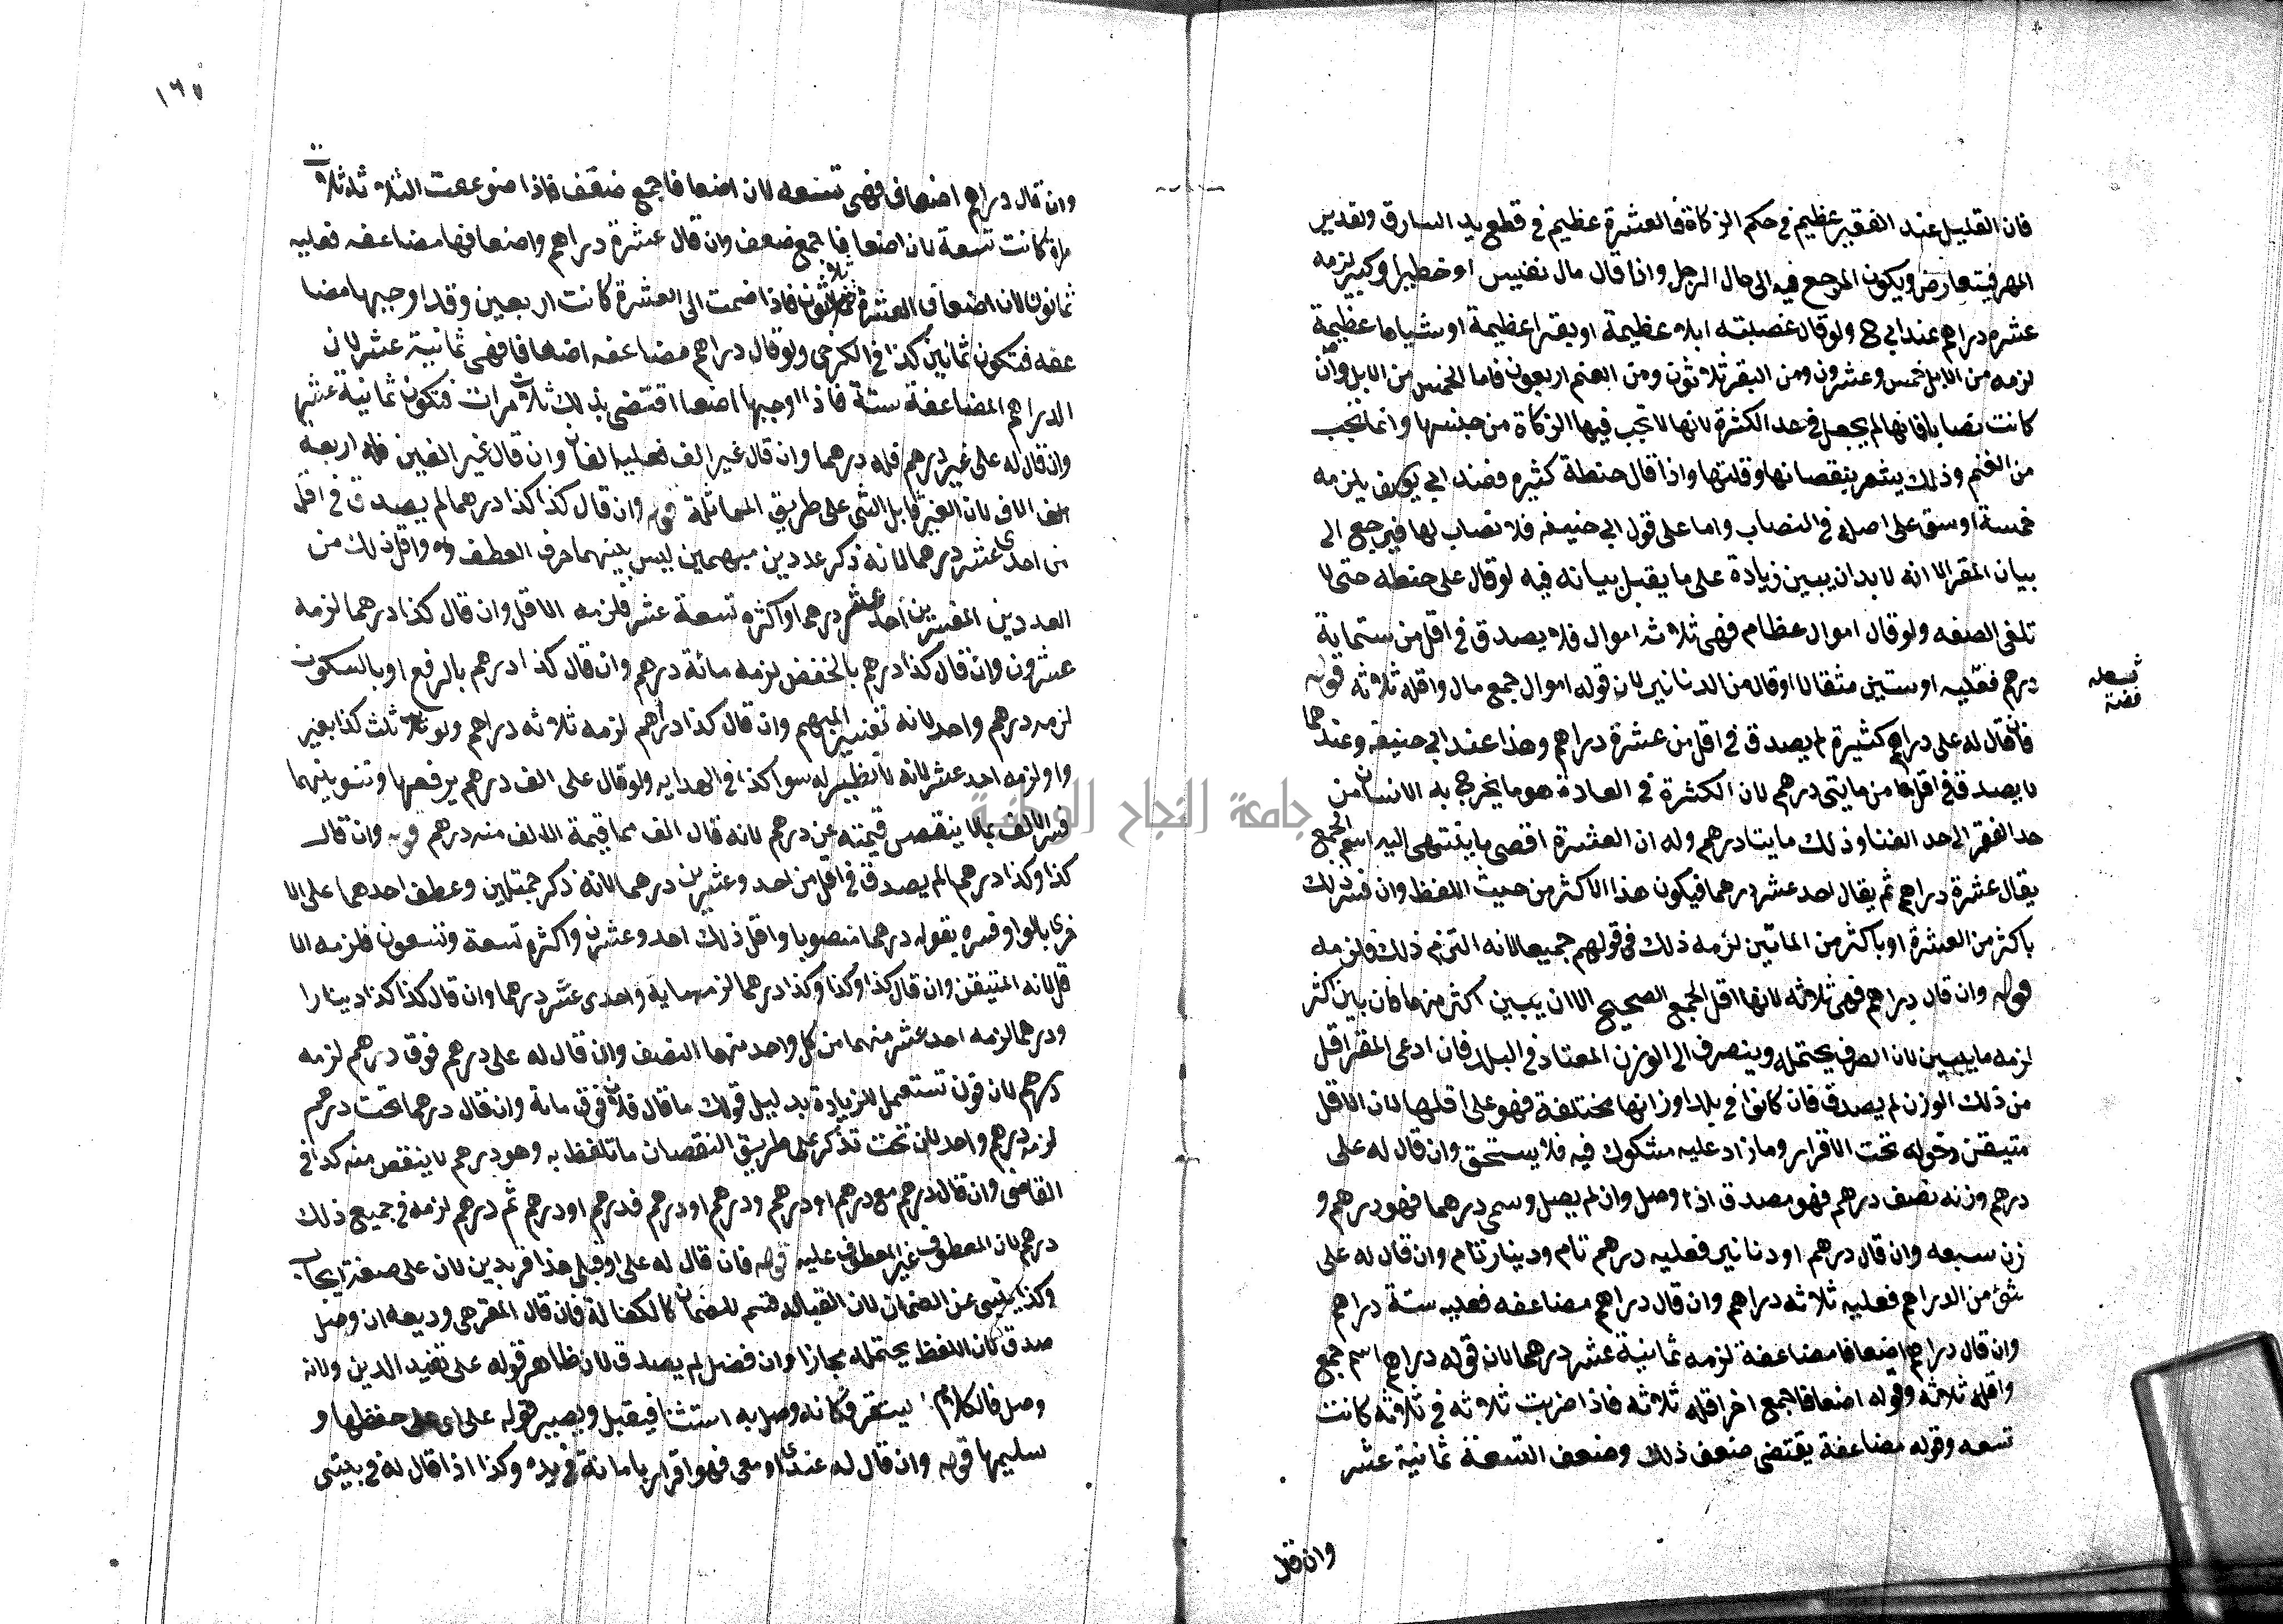 فان القليل عند الفقير عظيم في حكم الزكاة فالعشرة عظيم في قطع يد السارق وتقدير
المهر فيتعارض ويكون المرجع فيه الى حال الرجل واذا قال مال نفيس او خطير او كبير لزمه
عشره دراهم عند ابي ح ولو قال غصبته ابلا عظيمة او بقرا عظيمة او شياها عظيمة
لزمه من الابل خمس وعشرون ومن البقر ثلاثون ومن الغنم اربعون فاما الخمس من الابل وان
كانت نصابا فانها لم يجعل في حد الكثرة لانها لا تجب فيها الزكاة من جنسها وانما تجب
من الغنم وذلك يشعر بنقصانها وقلتها واذا قال حنطة كثيره فعند ابي يوسف يلزمه
خمسة اوسق على اصله في النصاب واما على قول ابي حنيفه فلا نصاب لها فيرجع الى
بيان المقر الا انه لا بد ان يبين زيادة على ما يقبل بيانه فيه لو قال على حنطه حتى لا
تلغى الصفه ولو قال اموال عظام فهى ثلاثه اموال فلا يصدق في اقل من ستماية
درهم فعليه او ستين مثقالا او قال من الدنانير لان قوله اموال جمع مال واقله ثلاثه قوله
فان قال له على دراهم كثيرة لم يصدق في اقل من عشرة دراهم وهذا عند ابي حنيفه وعندهما
لا يصدق في اقل من مايتى درهم لان الكثرة في العادة هو ما يخرج به الانسان من
حد الفقر الى حد الغنا وذلك مايتا درهم وله ان العشرة اقصى ما ينتهى اليه اسم الجمع
يقال عشرة دراهم ثم يقال احد عشر درهما فيكون هذا الاكثر من حيث اللفظ وان فسر ذلك
باكثر من العشرة او باكثر من الماتين لزمه ذلك في قولهم جميعا لانه التزم ذلك فلزمه
قوله وان قال دراهم فهى ثلاثه لانها اقل الجمع الصحيح الا ان يبين اكثر منها فان بين اكثر
لزمه ما يبين لان الصرف يحتمله وينصرف الى الوزن المعتاد في البلد فان ادعى المقر اقل
من ذلك الوزن لم يصدق فان كانوا في بلد اوزانها مختلفة فهو على اقلها لان الاقل
متيقن دخوله تحت الاقرار وما زاد عليه مشكوك فيه فلا يستحق وان قال له على
درهم وزنه نصف درهم فهو مصدق اذا وصل وان لم يصل وسمى درهما فهو درهم و
زن سبعه وان قال درهم او دنانير فعليه درهم تام ودينار تام وان قال له على
شئ من الدراهم فعليه ثلاثه دراهم وان قال دراهم مضاعفه فعليه ستة دراهم
وان قال دراهم اضعافا مضاعفة لزمه ثمانية عشر درهما لان قوله دراهم اسم جمع
واقله ثلاثه وقوله اضعافا جمع اخر اقله ثلاثه فاذا ضربت ثلاثه في ثلاثه كانت
تسعه وقوله مضاعفة يقتضى ضعف ذلك وضعف التسعة ثمانية عشر
وان قال
فضة
١٦٧
وان قال دراهم اضعاف فهى تسعه لان اضعافا جمع ضعف فاذا ضوعفت الثلاث ثلاث
مرات كانت تسعة لان اضعافا جمع ضعف وان قال عشرة دراهم واضعافها مضاعفه فعليه
ثمانون لان اضعاف العشرة ثلاثون فاذا ضمت الى العشرة كانت اربعين وقد اوجبها مضا
عفه فتكون ثمانين كذا في الكرخى ولو قال دراهم مضاعفه اضعافا فهى ثمانية عشر لان
الدراهم المضاعفة ستة فاذا اوجبها اضعافا اقتضى بذلك ثلاث مرات فتكون ثمانية عشر
وان قال له على غير درهم فله درهما وان قال غير الف فعليه الفان وان قال غير الفين فله اربعه
الف الاف لان الغير قابل الشى على طريق المماثلة قوله وان قال كذا كذا درهما لم يصدق في اقل
من احدى عشر درهما لانه ذكر عددين مبهمين ليس بينهما حرف العطف واقل ذلك من
العددين المفسرين احد عشر درهما واكثره تسعة عشر فلزمه الاقل وان قال كذا درهما لزمه
عشرون وان قال كذا درهم بالخفض لزمه مائة درهم وان قال كذا درهم بالرفع او بالسكون
لزمه درهم واحد لانه تفسير المبهم وان قال كذا دراهم لزمه ثلاثه دراهم ولو ثلث كذا بغير
واو لزمه احد عشر لانه لا نظير له سوا كذا في الهدايه ولو قال على الف درهم برفعها وتنوينهما
فسر الالف بما لا ينقص قيمته عن درهم لانه قال الف مما قيمة الالف منه درهم قوله وان قال
كذا وكذا درهما لم يصدق في اقل من احد وعشرين درهما لانه ذكر جملتين وعطف احدهما على الا
خرى بالواو فسره بقوله درهما منصوبا واقل ذلك احد وعشرون واكثره تسعة وتسعون فلزمه الا
قل لانه المتيقن وان قال كذا وكذا وكذا درهما لزمه ماية واحدى عشر درهما وان قال كذا كذا دينارا
ودرهما لزمه احد عشر منهما من كل واحد منهما النصف وان قال له على درهم فوق درهم لزمه
درهم لان فوق تستعمل للزيادة بدليل قولك ما قال فلان فوق مائة وان قال درهما تحت درهم
لزمه درهم واحد لان تحت تذكر على طريق النقصان ما تلفظ به وهو درهم لا ينقص منه كذا في
القاضى وان قال درهم مع درهم او درهم ودرهم او درهم فدرهم او درهم ثم درهم لزمه في جميع ذلك
درهم لان المعطوف غير المعطوف عليه قوله فان قال له على او قبلى هذا قر بدين لان على صفة ايجاب
وكذا ينبى عن الضمان لان القباله قسم للضمان كالكفالة فان قال المقر هى وديعه ان وصل
صدق لان اللفظ يحتمله مجازا وان فصل لم يصدق لان ظاهر قوله على تفيد الدين ولانه
وصل فالكلام لم يستقر فكانه وصل به استثنا فيقبل ويصير قوله على اى على حفظها و
سليمها قوله وان قال له عندى او معى فهو اقرار بامانة في يده وكذا اذا قال له في بيتى
جامعة النجاح الوطنية